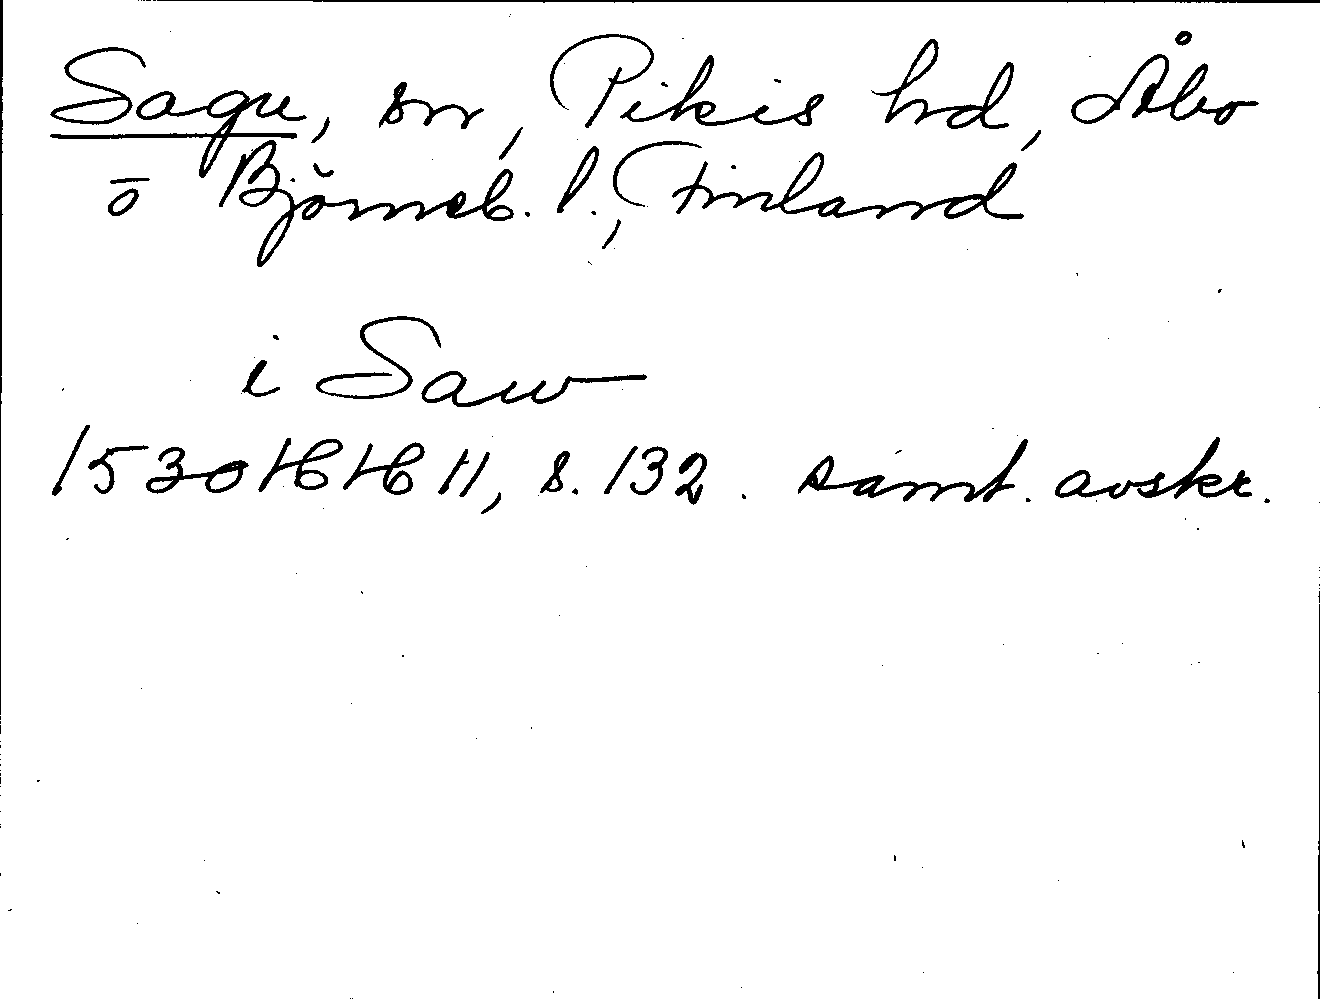 Sagu, sn, Pikis hd, Åbo
o Björneb. l., Finland
i Saw
1530 16/6 11, s. 132. samt. avskr.